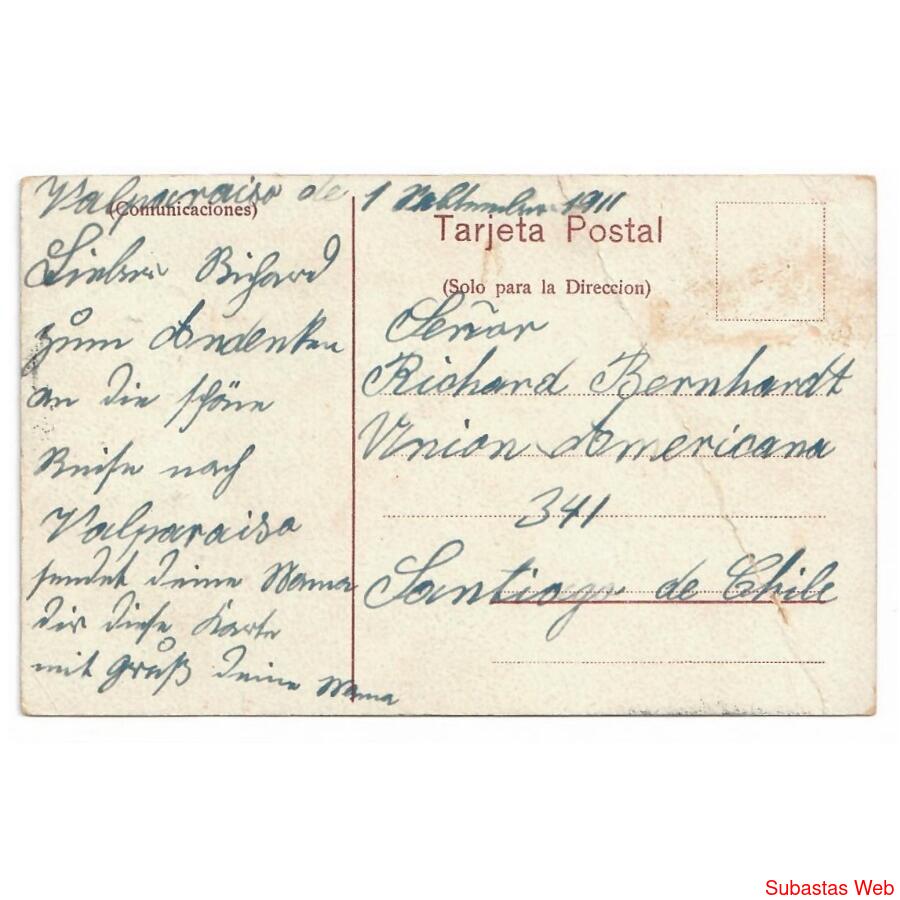 Valparaiso de 1 September 1911
(Comunicaciones)
Tarjeta Postal
(Solo para la Direccion)
Lieber Richard
zum Andenken
an die schöne
Reise nach
Valparaiso
sendet deine Mama
dir diese Karte
mit Gruß deine Mama
Señor
Richard Bernhardt
Union Americana
341
Santiago de Chile
Subastas Web